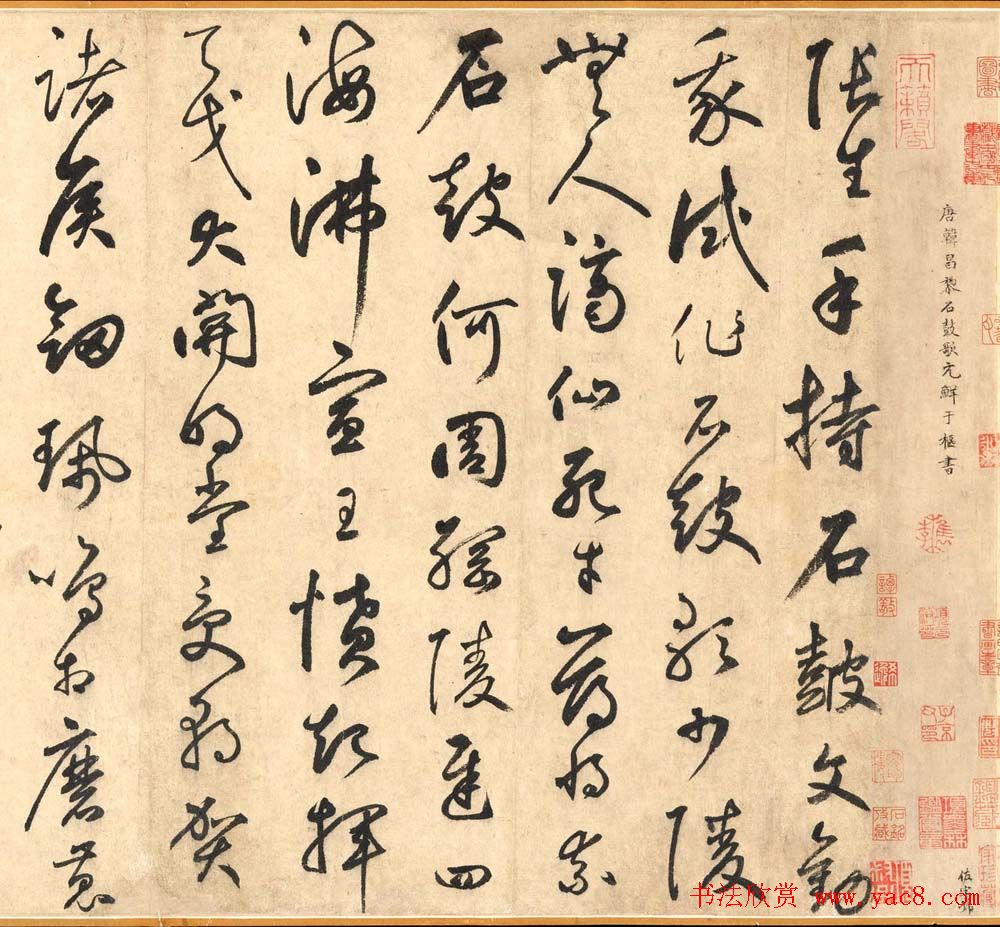 唐韓昌黎石鼓歌元鮮于樞書
天籟閣
張生手持石皷文勸
我試作石皷歌少陵
無人謫仙死才薄將奈
石皷何周綱陵遲四
海沸宣王憤起揮
天戈大開明堂受朝賀
諸侯劍珮鳴相磨蒐
书法欣赏 www.yac8.com